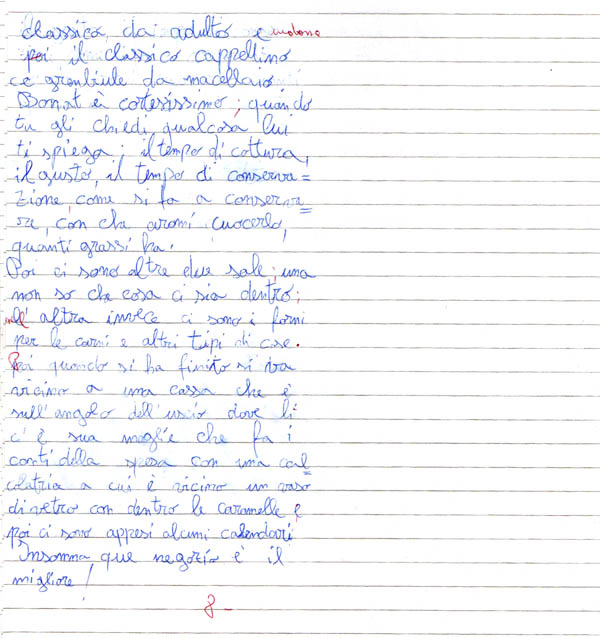 classica, da adulto e indossa
poi il classico cappellino
e grembiule da macellaio.
Donat è cortesissimo; quando
tu gli chiedi qualcosa lui
ti spiega; il tempo di cottura,
il gusto, il tempo di conserva=
zione, come si fa a conserva=
re, con che aromi cuocerlo,
quanti grassi ha.
Poi ci sono altre due sale; una
non so che cosa ci sia dentro;
nell'altra invece ci sono i forni
per le carni e altri tipi di cose.
Poi quando si ha finito si va
vicino a una cassa che è
sull'angolo dell'uscio dove lì
c'è sua moglie che fa i
conti della spesa con una cal=
colatrice a cui è vicino un vaso
di vetro con dentro le caramelle e
poi ci sono appesi alcuni calendari
Insomma que negozio è il
migliore!
8-